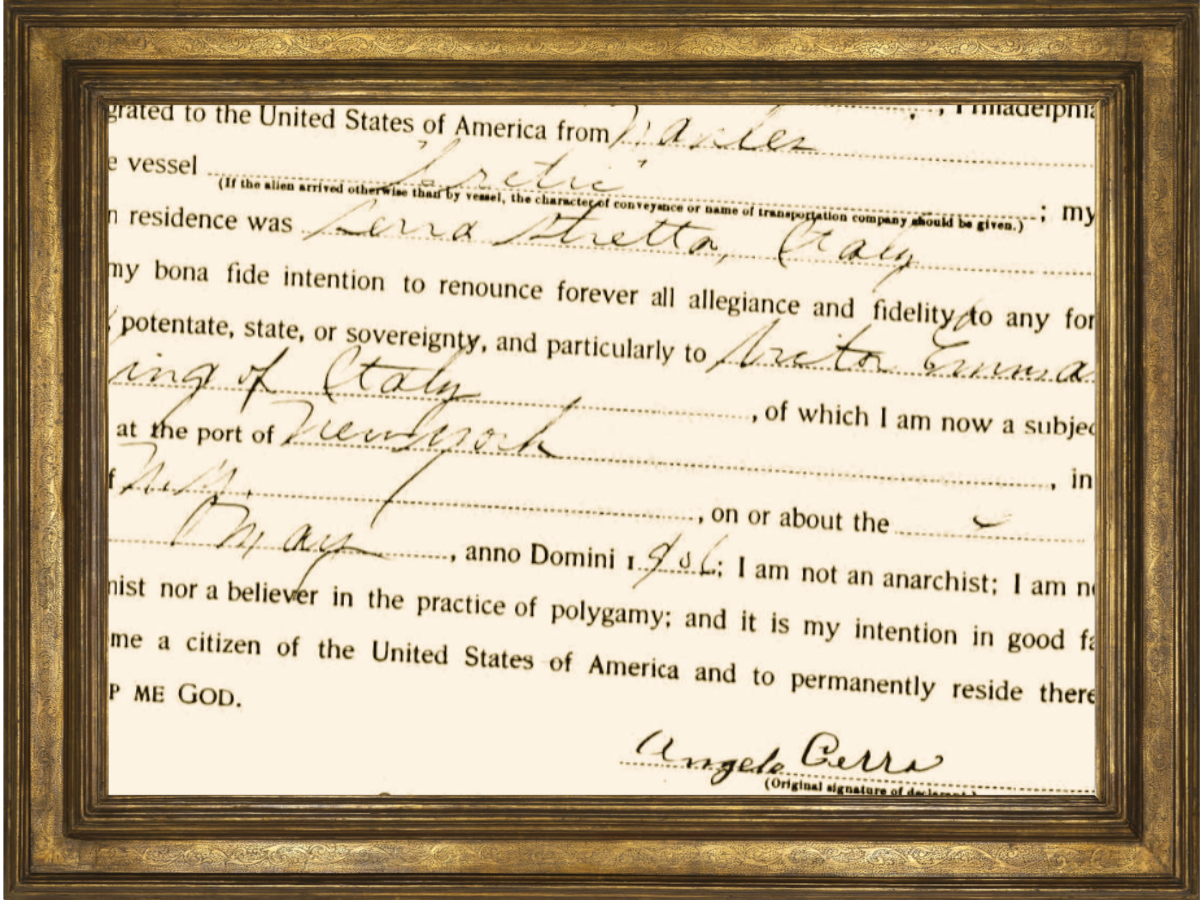 grated to the United States of America from Naples , Philadelphia
e vessel "Cretic"
(If the alien arrived otherwise than by vessel, the character of conveyance or name of transportation company should be given.) ; my
n residence was Serra Stretta, Italy
my bona fide intention to renounce forever all allegiance and fidelity to any for
, potentate, state, or sovereignty, and particularly to Victor Emma
ing of Italy , of which I am now a subjec
at the port of New York , in
f N.Y. , on or about the
May , anno Domini 1906; I am not an anarchist; I am n
nist nor a believer in the practice of polygamy; and it is my intention in good fa
me a citizen of the United States of America and to permanently reside there
P ME GOD.
Angelo Cerra
(Original signature of declarant.)